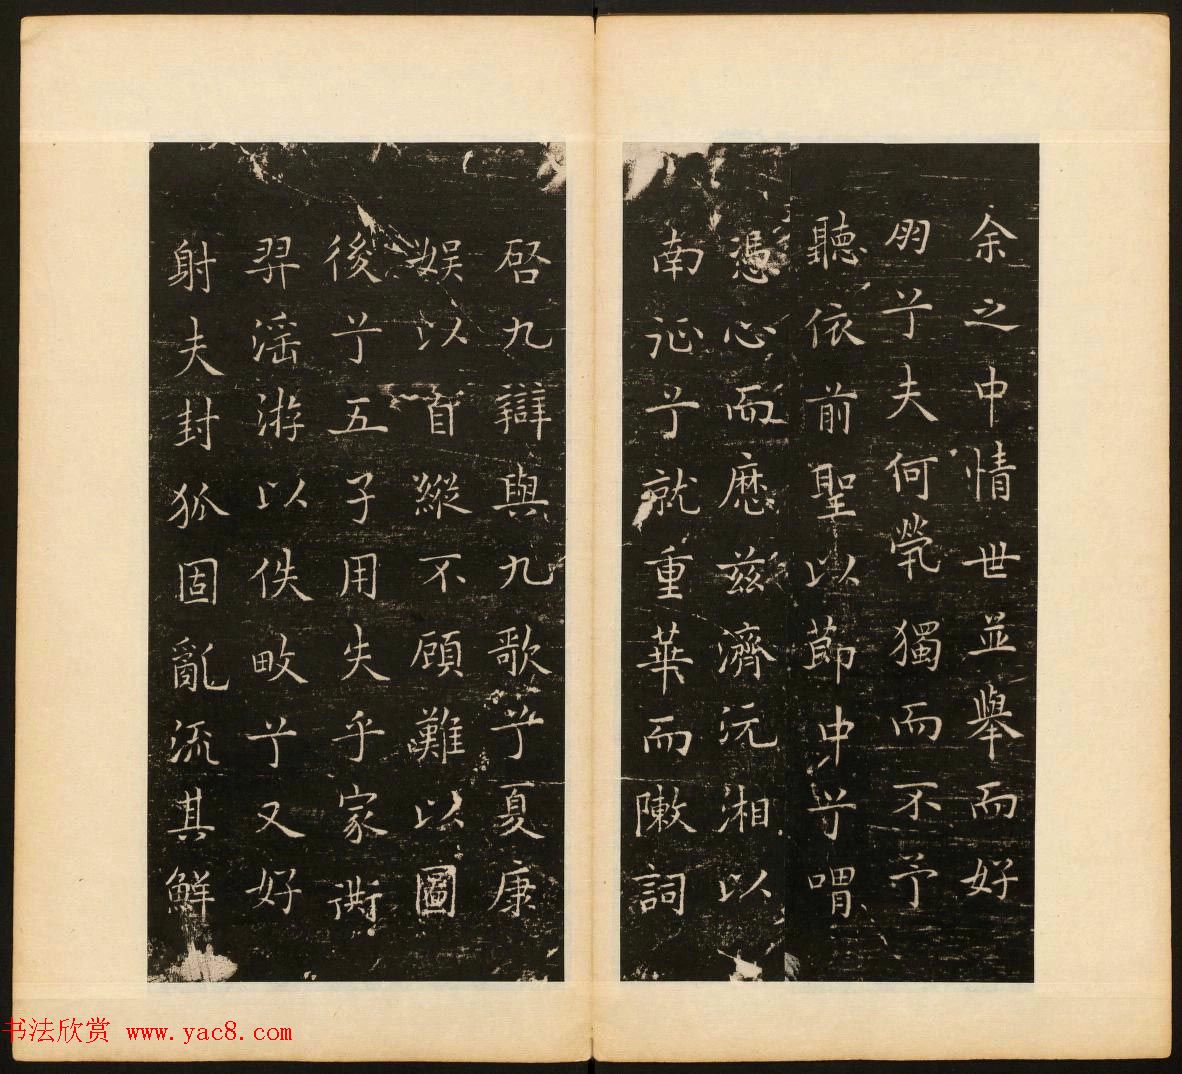 余之中情世並舉而好
朋兮夫何煢獨而不予
聽依前聖以節中兮喟
憑心而歷茲濟沅湘以
南征兮就重華而敶詞
啟九辯與九歌兮夏康
娛以自縱不顧難以圖
後兮五子用失乎家衖
羿淫游以佚畋兮又好
射夫封狐固亂流其鮮
书法欣赏 www.yac8.com